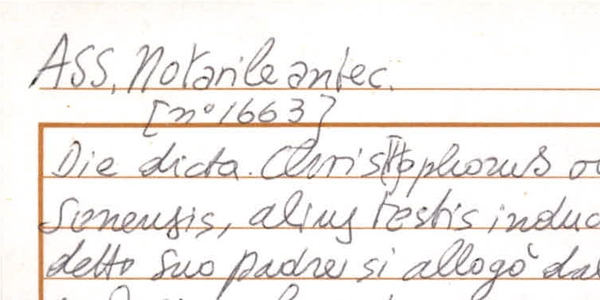 Ass. Notarile antec.
[n° 1663]
Die dicta. Christophorus
Senensis, alius testis induc
detto suo padre si allogò dal